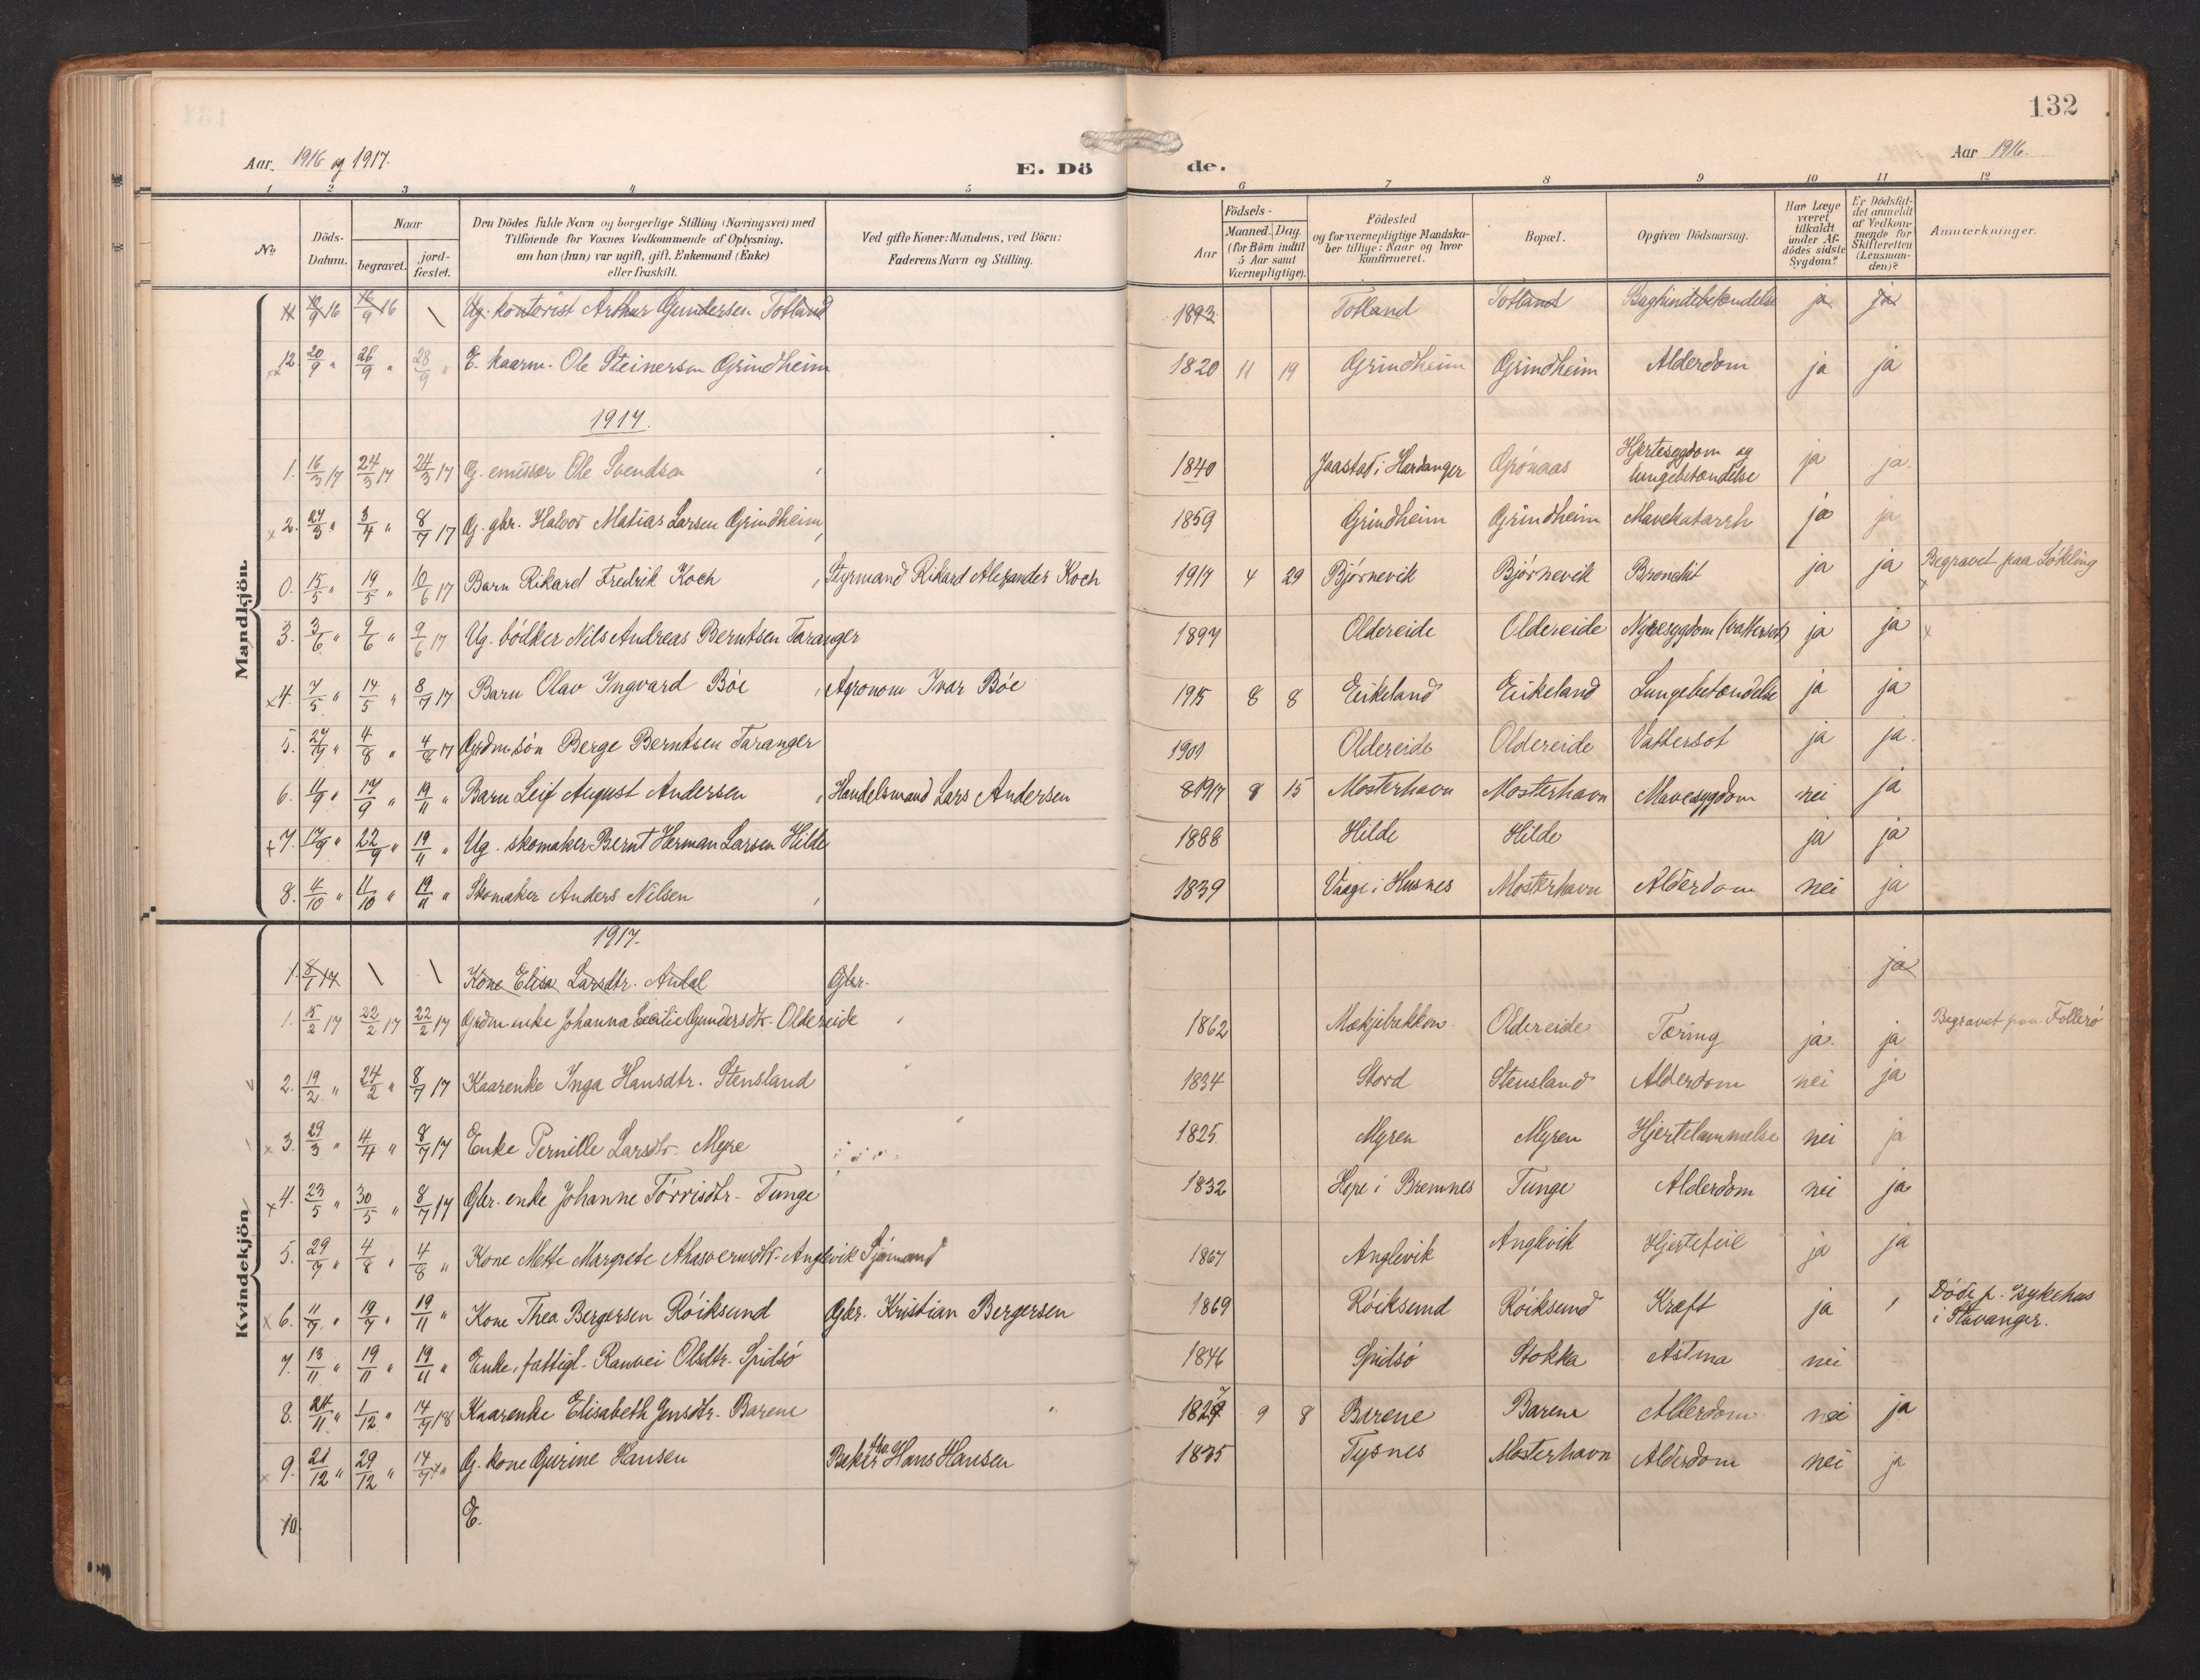 132
Aar 1916 og 1917.
E. Dö de.
Aar 1916.
1 2 3 4 5 6 7 8 9 10 11 12
No.
Döds-Datum.
Naar
begravet.
jord-fæstet.
Den Dödes fulde Navn og borgerlige Stilling (Næringsvei) med
Tilföiende for Voxnes Vedkommende af Oplysning,
om han (hun) var ugift, gift, Enkemand (Enke)
eller fraskilt.
Ved gifte Koner: Mandens, ved Börn:
Faderens Navn og Stilling.
Födsels-
Aar
Maaned. Dag.
(for Börn indtil
5 Aar samt
Værnepligtige).
Födested
og for værnepligtige Mandska-
ber tillige: Naar og hvor
konfirmeret.
Bopæl.
Opgiven Dödsaarsag.
Har Læge
været
tilkaldt
under Af-
dödes sidste
Sygdom?
Er Dödsfal-
det anmeldt
af Vedkom-
mende for
Skifteretten
(Lensman-
den)?
Anmærkninger.
Mandkjön.
Ug. kontorist Arthur Gundersen Totland 1893 Totland Totland ja ja
12. 20/9 " 26/9 " 28/9 " E. kaarm. Ole Steinersen Grindheim 1820 11 19 Grindheim Grindheim Alderdom ja ja
1917.
1. 16/3 17 24/3 17 24/3 17 G. emissær Ole Svendsen 1840 Jaastad i Hardanger Grönaas Hjertesygdom og lungebetændelse ja ja.
x 2. 27/3 " 3/4 " 8/7 17 G. gbr. Halvor Matias Larsen Grindheim 1859 Grindheim Grindheim Mavekatarrh ja ja
0. 15/5 " 19/5 " 10/6 17 Barn Rikard Fredrik Koch Styrmand Rikard Alexander Koch 1917 4 29 Bjørnevik Bjørnevik Bronchit ja ja Begravet paa Lökling
3. 3/6 " 9/6 " 9/6 17 Ug. bödker Nils Andreas Berntsen Taranger 1897 Oldereide Oldereide Nyresygdom (vattersot) ja ja
x 4. 7/5 " 14/5 " 8/7 17 Barn Olav Ingvard Böe Agronom Ivar Böe 1915 8 8 Eikeland Eikeland Lungebetændelse ja ja
5. " 4/8 " 4/8 17 Grdm. sön Berge Berntsen Taranger 1901 Oldereide Oldereide Vattersot ja ja.
6. 11/9 " 17/9 " 19/11 " Barn Leif August Andersen Handelsmand Lars Andersen 1917 8 15 Mosterhavn Mosterhavn Mavesygdom nei ja
x 7. 17/9 " 22/9 " 19/11 " Ug. skomaker Bernt Herman Larsen Hilde 1888 Hilde Hilde ja ja
8. 4/10 " 11/10 " 19/11 " Skomaker Anders Nilsen 1839 Vaage i Husnes Mosterhavn Alderdom nei ja
Kvindekjön
1917.
1. 8/1 17 \ \ Kone Elisa Larsdtr. Andal Gbr. ja
1. 15/2 17 22/2 17 22/2 17 Grdm. enke Johanna Cecilie Gundersdtr. Oldereide 1862 Mækjebakken Oldereide Tæring ja. ja Begravet paa Folkrö
2. 19/2 " 24/2 " 8/7 17 Kaarenke Inga Hansdtr. Stensland 1834 Stord Stensland Alderdom nei ja
x 3. 29/3 " 4/4 " 8/7 17 Enke Pernille Larsdtr. Myre 1825. Myren Myren Hjertelammelse nei ja
x 4. 23/5 " 30/5 " 8/7 17 Gbr. enke Johanne Törrisdtr. Tunge 1832 Hope i Bremnes Tunge Alderdom nei ja
5. " 4/8 " 4/8 " Kone Mette Margrete Ahasverusdtr. Anglevik Sjömand 1867 Anglevik Anglevik Hjertefeil ja ja
x 6. 11/7 " 19/7 " 19/11 " Kone Thea Bergersen Röiksund Gbr. Kristian Bergersen 1869 Röiksund Röiksund Kræft ja Döde p. sykehus i Stavanger.
7. 13/11 " 19/11 " 19/11 " Enke, fattigl. Ranvei Olsdtr. Spidsö 1846 Spidsö Stokka Astma nei
8. 24/11 " 1/12 " 14/7 18 Kaarenke Elisabeth Jensdtr. Barene 1827 9 8 Barene Barene Alderdom nei ja
x 9. 21/12 " 29/12 " 14/7 " G. kone Gurine Hansen Baker Hans Hansen 1835 Tysnes Mosterhavn Alderdom nei ja
10. E.